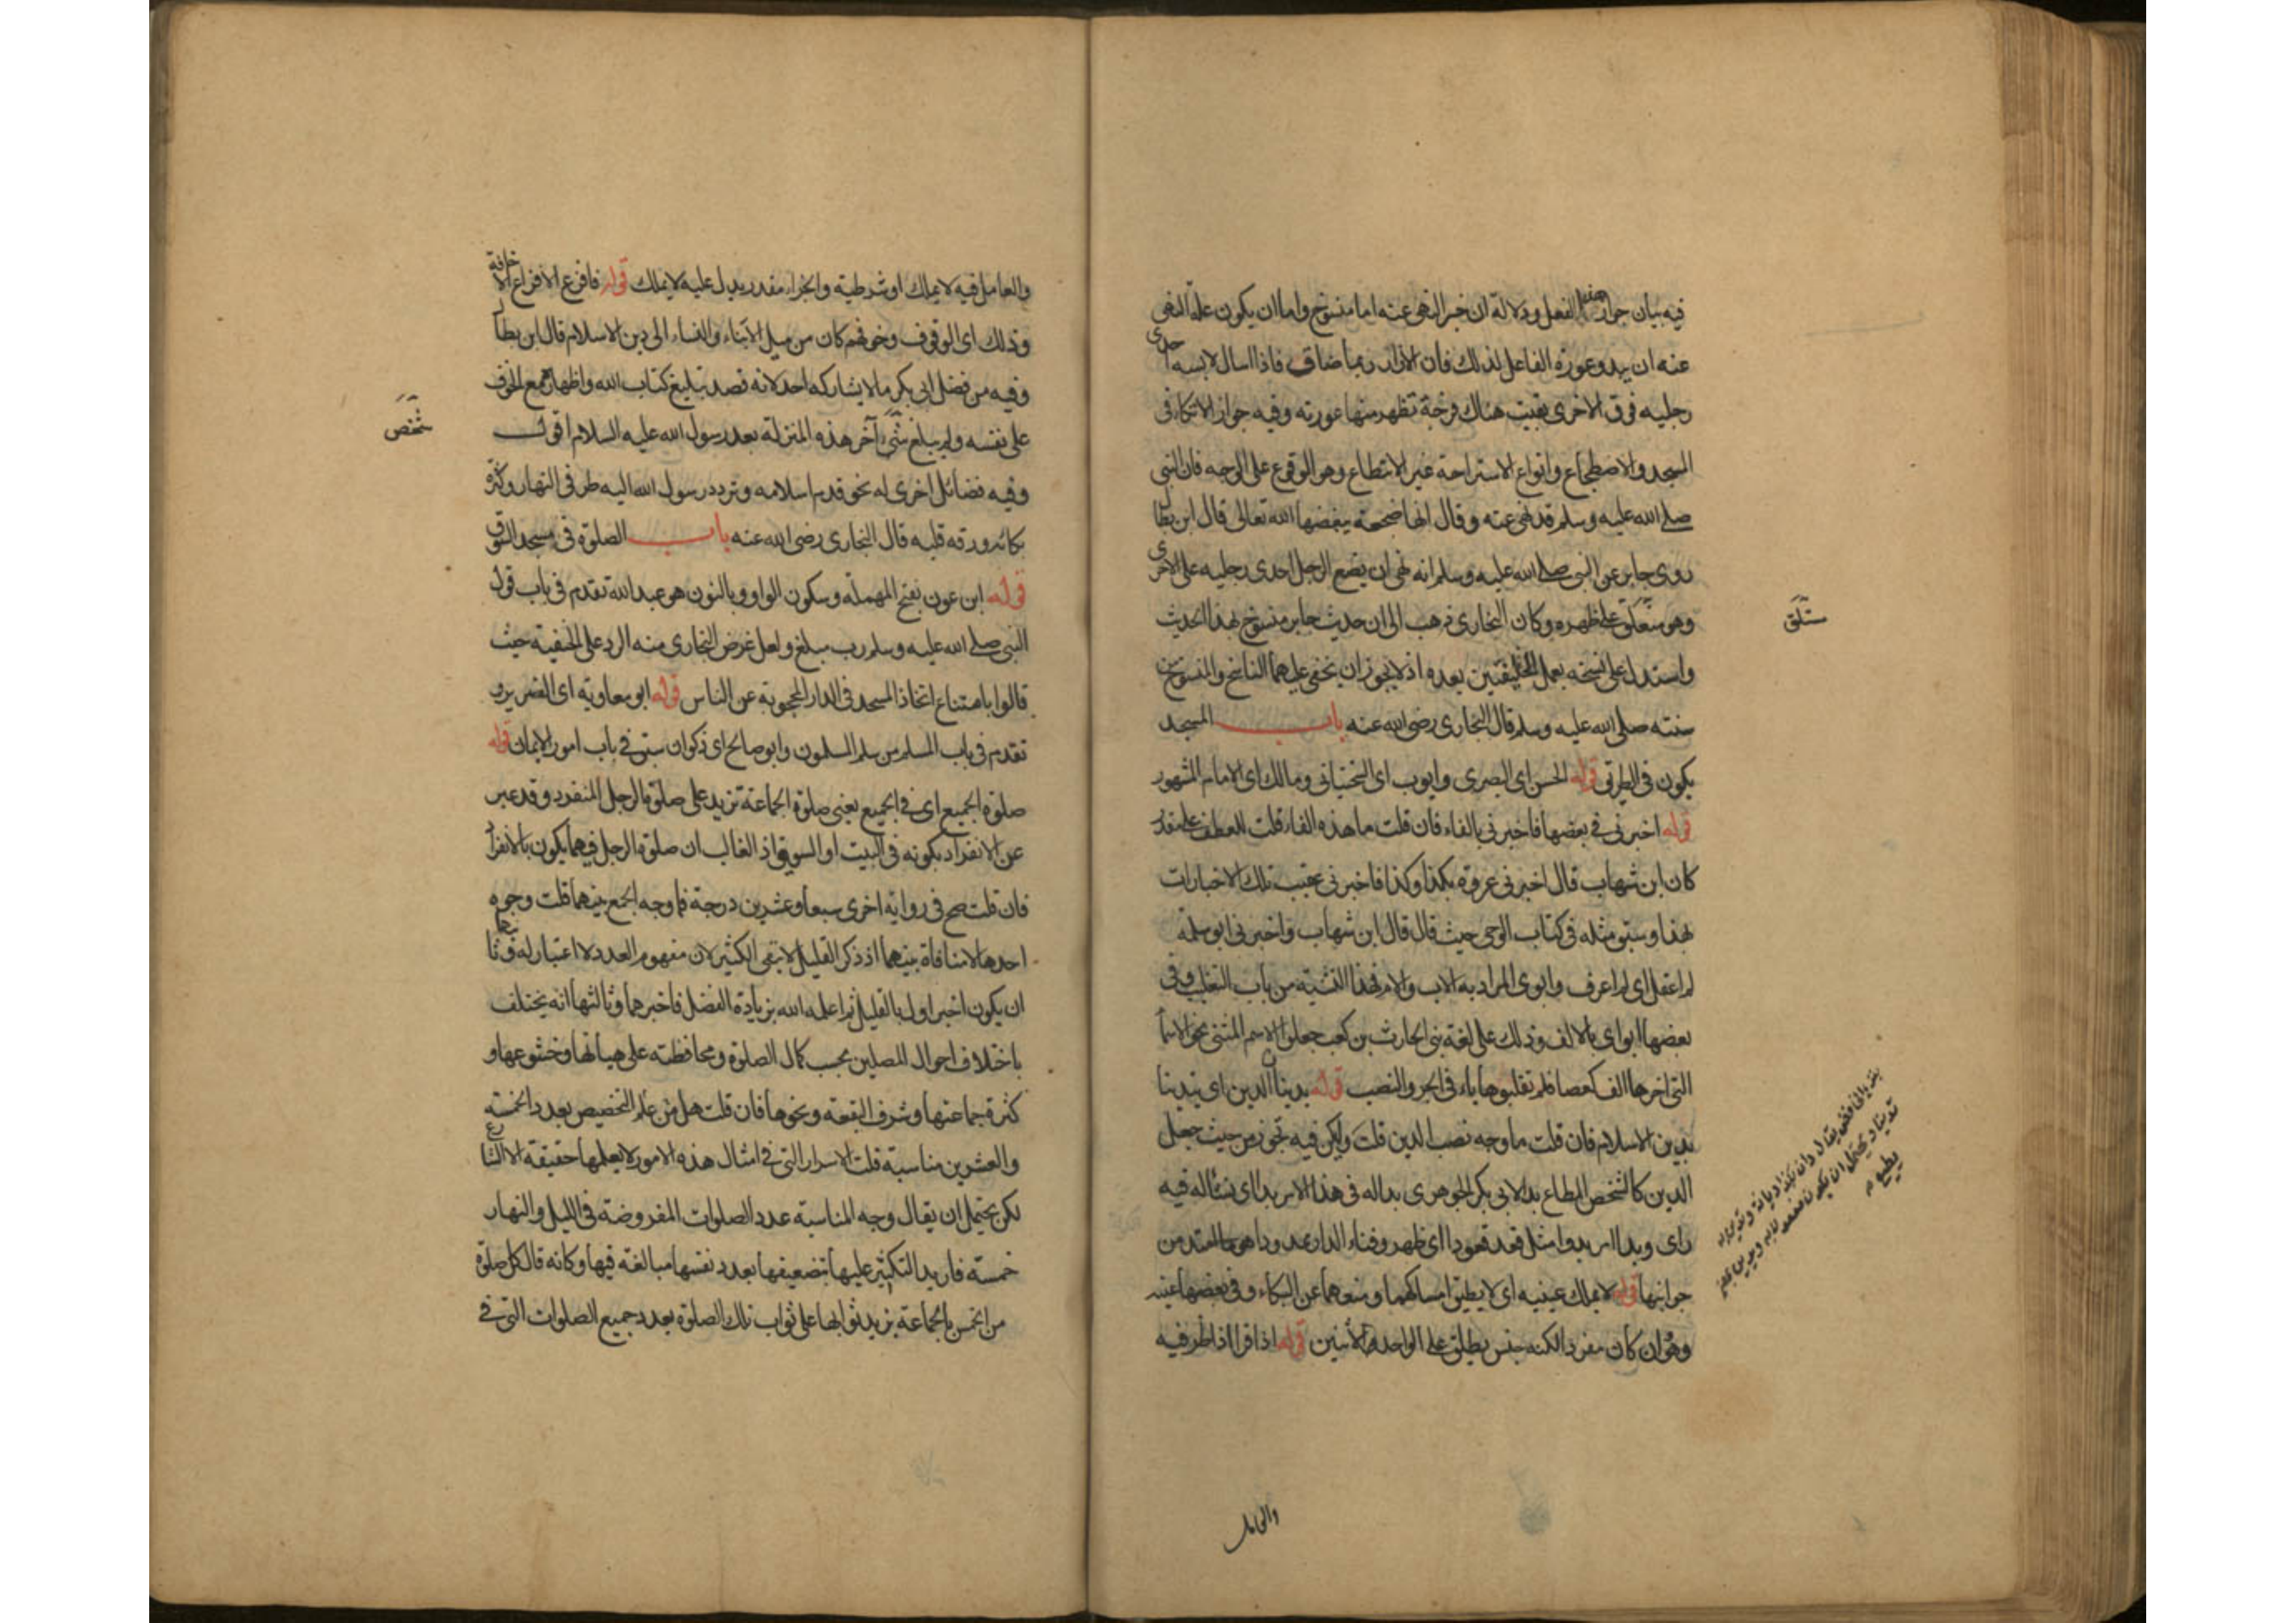 فيه بيان جواز هذا الفعل ودلالة ان خبر النهى عنه اما منسوخ واما ان يكون علة النهى
عنه ان يبدو عورة الفاعل لذلك فان الازار ربما ضاق فاذا اسال لابسه احدى
رجليه فوق الاخرى بقيت هناك فرجة تظهر منها عورته وفيه جواز الاتكا فى
المسجد والاضطجاع وانواع الاستراحة غير الانبطاع وهو الوقوع على الوجه فان النبى
صلى الله عليه وسلم قد نهى عنه وقال انها ضجعة يبغضها الله تعالى قال ابن بطال
روى جابر عن النبى صلى الله عليه وسلم انه نهى ان يضع الرجل احدى رجليه على الاخرى
وهو مستلق على ظهره وكان البخارى ذهب الى ان حديث جابر منسوخ بهذا الحديث
واستدل على نسخه بعمل الخليفتين بعده اذ لا يجوز ان يخفى عليهما الناسخ والمنسوخ من
سنته صلى الله عليه وسلم قال البخارى رضى الله عنه باب المسجد
يكون فى الطرق قوله الحسن اى البصرى وايوب اى السختيانى ومالك اى الامام المشهور
قوله اخبرنى فى بعضها فاخبرنى بالفاء فان قلت ما هذه الفاء قلت للعطف على مقدر
كان ابن شهاب قال اخبرنى عروة بكذا وكذا فاخبرنى عقيب تلك الاخبارات
بهذا وسبق مثله فى كتاب الوحى حيث قال قال ابن شهاب واخبرنى ابو سلمة
لم اعقل اى لم اعرف وابوى المراد به الاب والام فهذا التثنية من باب التغليب وفى
بعضها ابواى بالالف وذلك على لغة بنى الحارث بن كعب جعلوا الاسم المثنى نحو الاسما
التى اخرها الف كعصا فلم تقلبوها ياء فى الجر والنصب قوله يدينان الدين اى يتدينا
بدين الاسلام فان قلت ما وجه نصب الدين قلت ولكن فيه تجوز من حيث جعل
الدين كالشخص المطاع بدا لابى بكر الجوهرى بدا له فى هذا الامر بدا اى نشأ له فيه
راى وبدا الامر بدوا مثل قعد قعودا اى ظهر وفناء الدار ممدودا هو ما امتد من
جوانبها قوله لا يملك عينيه اى لا يطيق امساكهما ومنعهما عن البكاء وفى بعضها عينه
وهو ان كان مفردا لكنه جنس يطلق على الواحد والاثنين قوله اذا قرا اذا ظرفيه
مستلق
والعامل
والعامل فيه لا يملك او شرطية والجزاء مقدر يدل عليه لا يملك قوله فافزع الافزاع الاخافة
وذلك اى الوقوف وخوفهم كان من ميل الابناء والنساء الى دين الاسلام قال ابن بطال
وفيه من فضل ابى بكر ما لا يشاركه احد لانه قصد تبليغ كتاب الله واظهاره مع الخوف
على نفسه ولم يبلغ شخص آخر هذه المنزلة بعد رسول الله عليه السلام اقول
وفيه فضائل اخرى له نحو قدم اسلامه وتردد رسول الله اليه طرفى النهار وكثرة
بكائه ورقه قلبه قال البخارى رضى الله عنه باب الصلوة فى مسجد السوق
قوله ابن عون بفتح المهملة وسكون الواو وبالنون هو عبد الله تقدم فى باب قول
النبى صلى الله عليه وسلم رب مبلغ ولعل غرض البخارى منه الرد على الحنفية حيث
قالوا بامتناع اتخاذ المسجد فى الدار المحجوبة عن الناس قوله ابو معاوية اى الضرير و
تقدم فى باب المسلم من سلم المسلمون وابو صالح اى ذكوان سبق فى باب امور الايمان قوله
صلوة الجميع اى فى الجميع يعنى صلوة الجماعة تزيد على صلوة الرجل المنفرد وقد عبر
عن الانفراد بكونه فى البيت او السوق اذ الغالب ان صلوة الرجل فيهما يكون بالانفراد
فان قلت صح فى رواية اخرى سبعا وعشرين درجة فما وجه الجمع بينهما قلت وجوه
احدها لا منافاة بينهما اذ ذكر القليل لا ينفى الكثير لان مفهوم العدد لا اعتبار له وثانيهما
ان يكون اخبر اولا بالقليل ثم اعلمه الله بزيادة الفضل فاخبر بها وثالثها انه يختلف
باختلاف احوال المصلين بحسب كمال الصلوة ومحافظته على هيأتها وخشوعها و
كثرة جماعتها وشرف البقعة ونحوها فان قلت هل من علم التخصيص بعدد الخمسة
والعشرين مناسبة قلت الاسرار التى فى امثال هذه الامور لا يعلمها حقيقة الا الشارع
لكن يحتمل ان يقال وجه المناسبة عدد الصلوات المفروضة فى الليل والنهار
خمسة فاريد التكثير عليها بتضعيفها بعدد نفسها مبالغة فيها وكانه قال كل صلوة
من الخمس بالجماعة يزيد ثوابها على ثواب تلك الصلوة بعدد جميع الصلوات التى فى
شخص